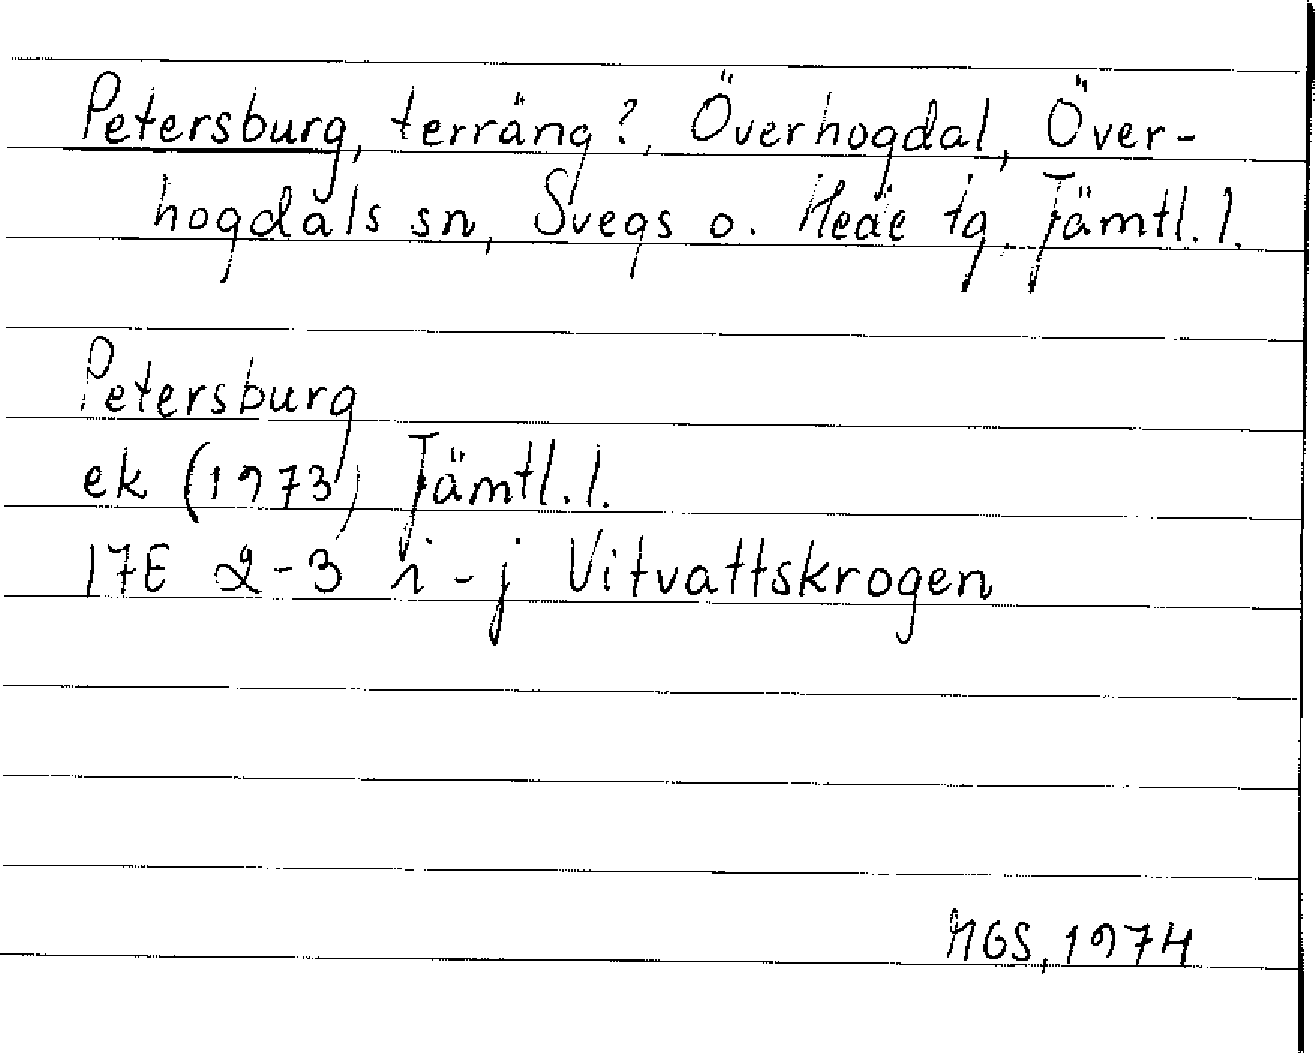 Petersburg, terräng?, Överhogdal, Över-
hogdals sn, Svegs o. Hede tg, Jämtl. l.
Petersburg
ek (1973) Jämtl. l.
17E 2-3 i-j Vitvattskrogen
MGS, 1974